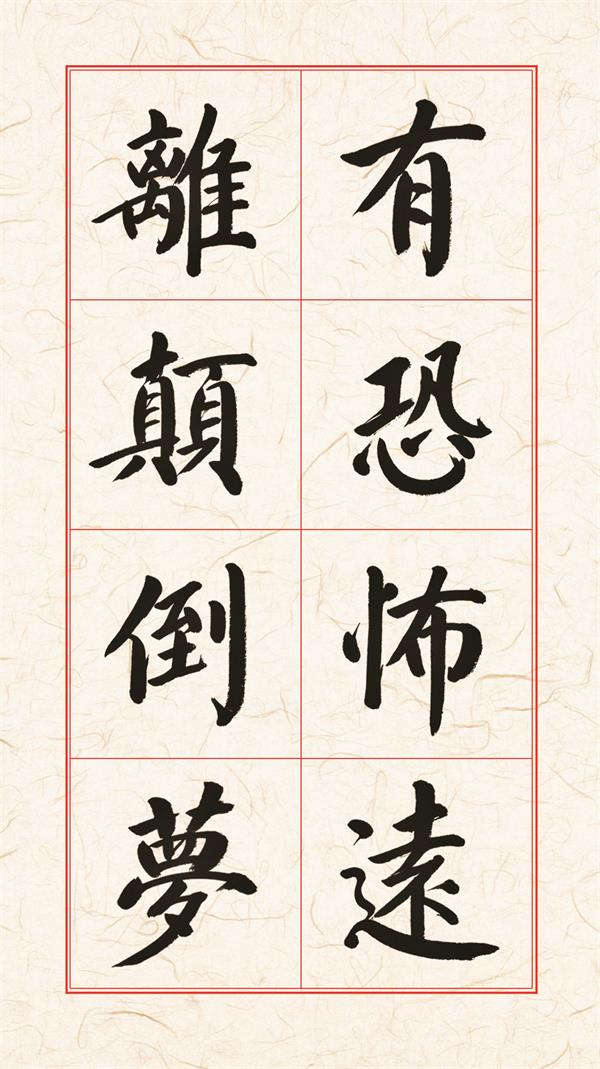 有恐怖遠
離顛倒夢